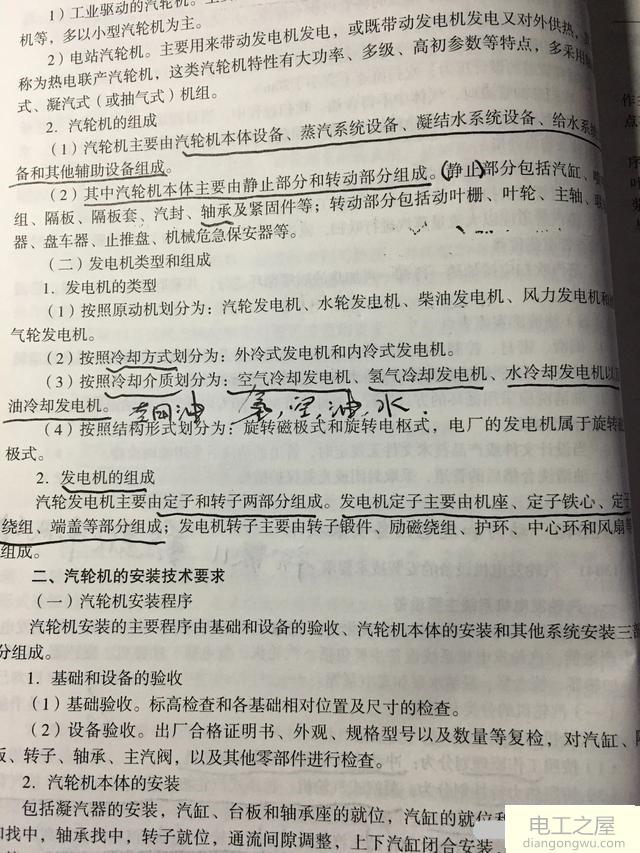 1）工业驱动的汽轮机。主
机等，多以小型汽轮机为主。
2）电站汽轮机。主要用来带动发电机发电，或既带动发电机发电又对外供热，
称为热电联产汽轮机，这类汽轮机特性有大功率、多级、高初参数等特点，多采用
式、凝汽式（或抽气式）机组。
2．汽轮机的组成
（1）汽轮机主要由汽轮机本体设备、蒸汽系统设备、凝结水系统设备、给水系统
备和其他辅助设备组成。
（2）其中汽轮机本体主要由静止部分和转动部分组成。（静止）部分包括汽缸、
组、隔板、隔板套、汽封、轴承及紧固件等；转动部分包括动叶栅、叶轮、主轴、联
器、盘车器、止推盘、机械危急保安器等。
（二）发电机类型和组成
1．发电机的类型
（1）按照原动机划分为：汽轮发电机、水轮发电机、柴油发电机、风力发电机和
气轮发电机。
（2）按照冷却方式划分为：外冷式发电机和内冷式发电机。
（3）按照冷却介质划分为：空气冷却发电机、氢气冷却发电机、水冷却发电机以
油冷却发电机。
油 水
（4）按照结构形式划分为：旋转磁极式和旋转电枢式，电厂的发电机属于旋转磁
极式。
2．发电机的组成
汽轮发电机主要由定子和转子两部分组成。发电机定子主要由机座、定子铁心、定子
绕组、端盖等部分组成；发电机转子主要由转子锻件、励磁绕组、护环、中心环和风扇等
组成。
二、汽轮机的安装技术要求
（一）汽轮机安装程序
汽轮机安装的主要程序由基础和设备的验收、汽轮机本体的安装和其他系统安装三部
分组成。
1．基础和设备的验收
（1）基础验收。标高检查和各基础相对位置及尺寸的检查。
（2）设备验收。出厂合格证明书、外观、规格型号以及数量等复检，对汽缸、隔
板、转子、轴承、主汽阀，以及其他零部件进行检查。
2．汽轮机本体的安装
包括凝汽器的安装，汽缸、台板和轴承座的就位，汽缸的就位和
和找中，轴承找中，转子就位，通流间隙调整，上下汽缸闭合安装
电工之屋
diangongwu.com